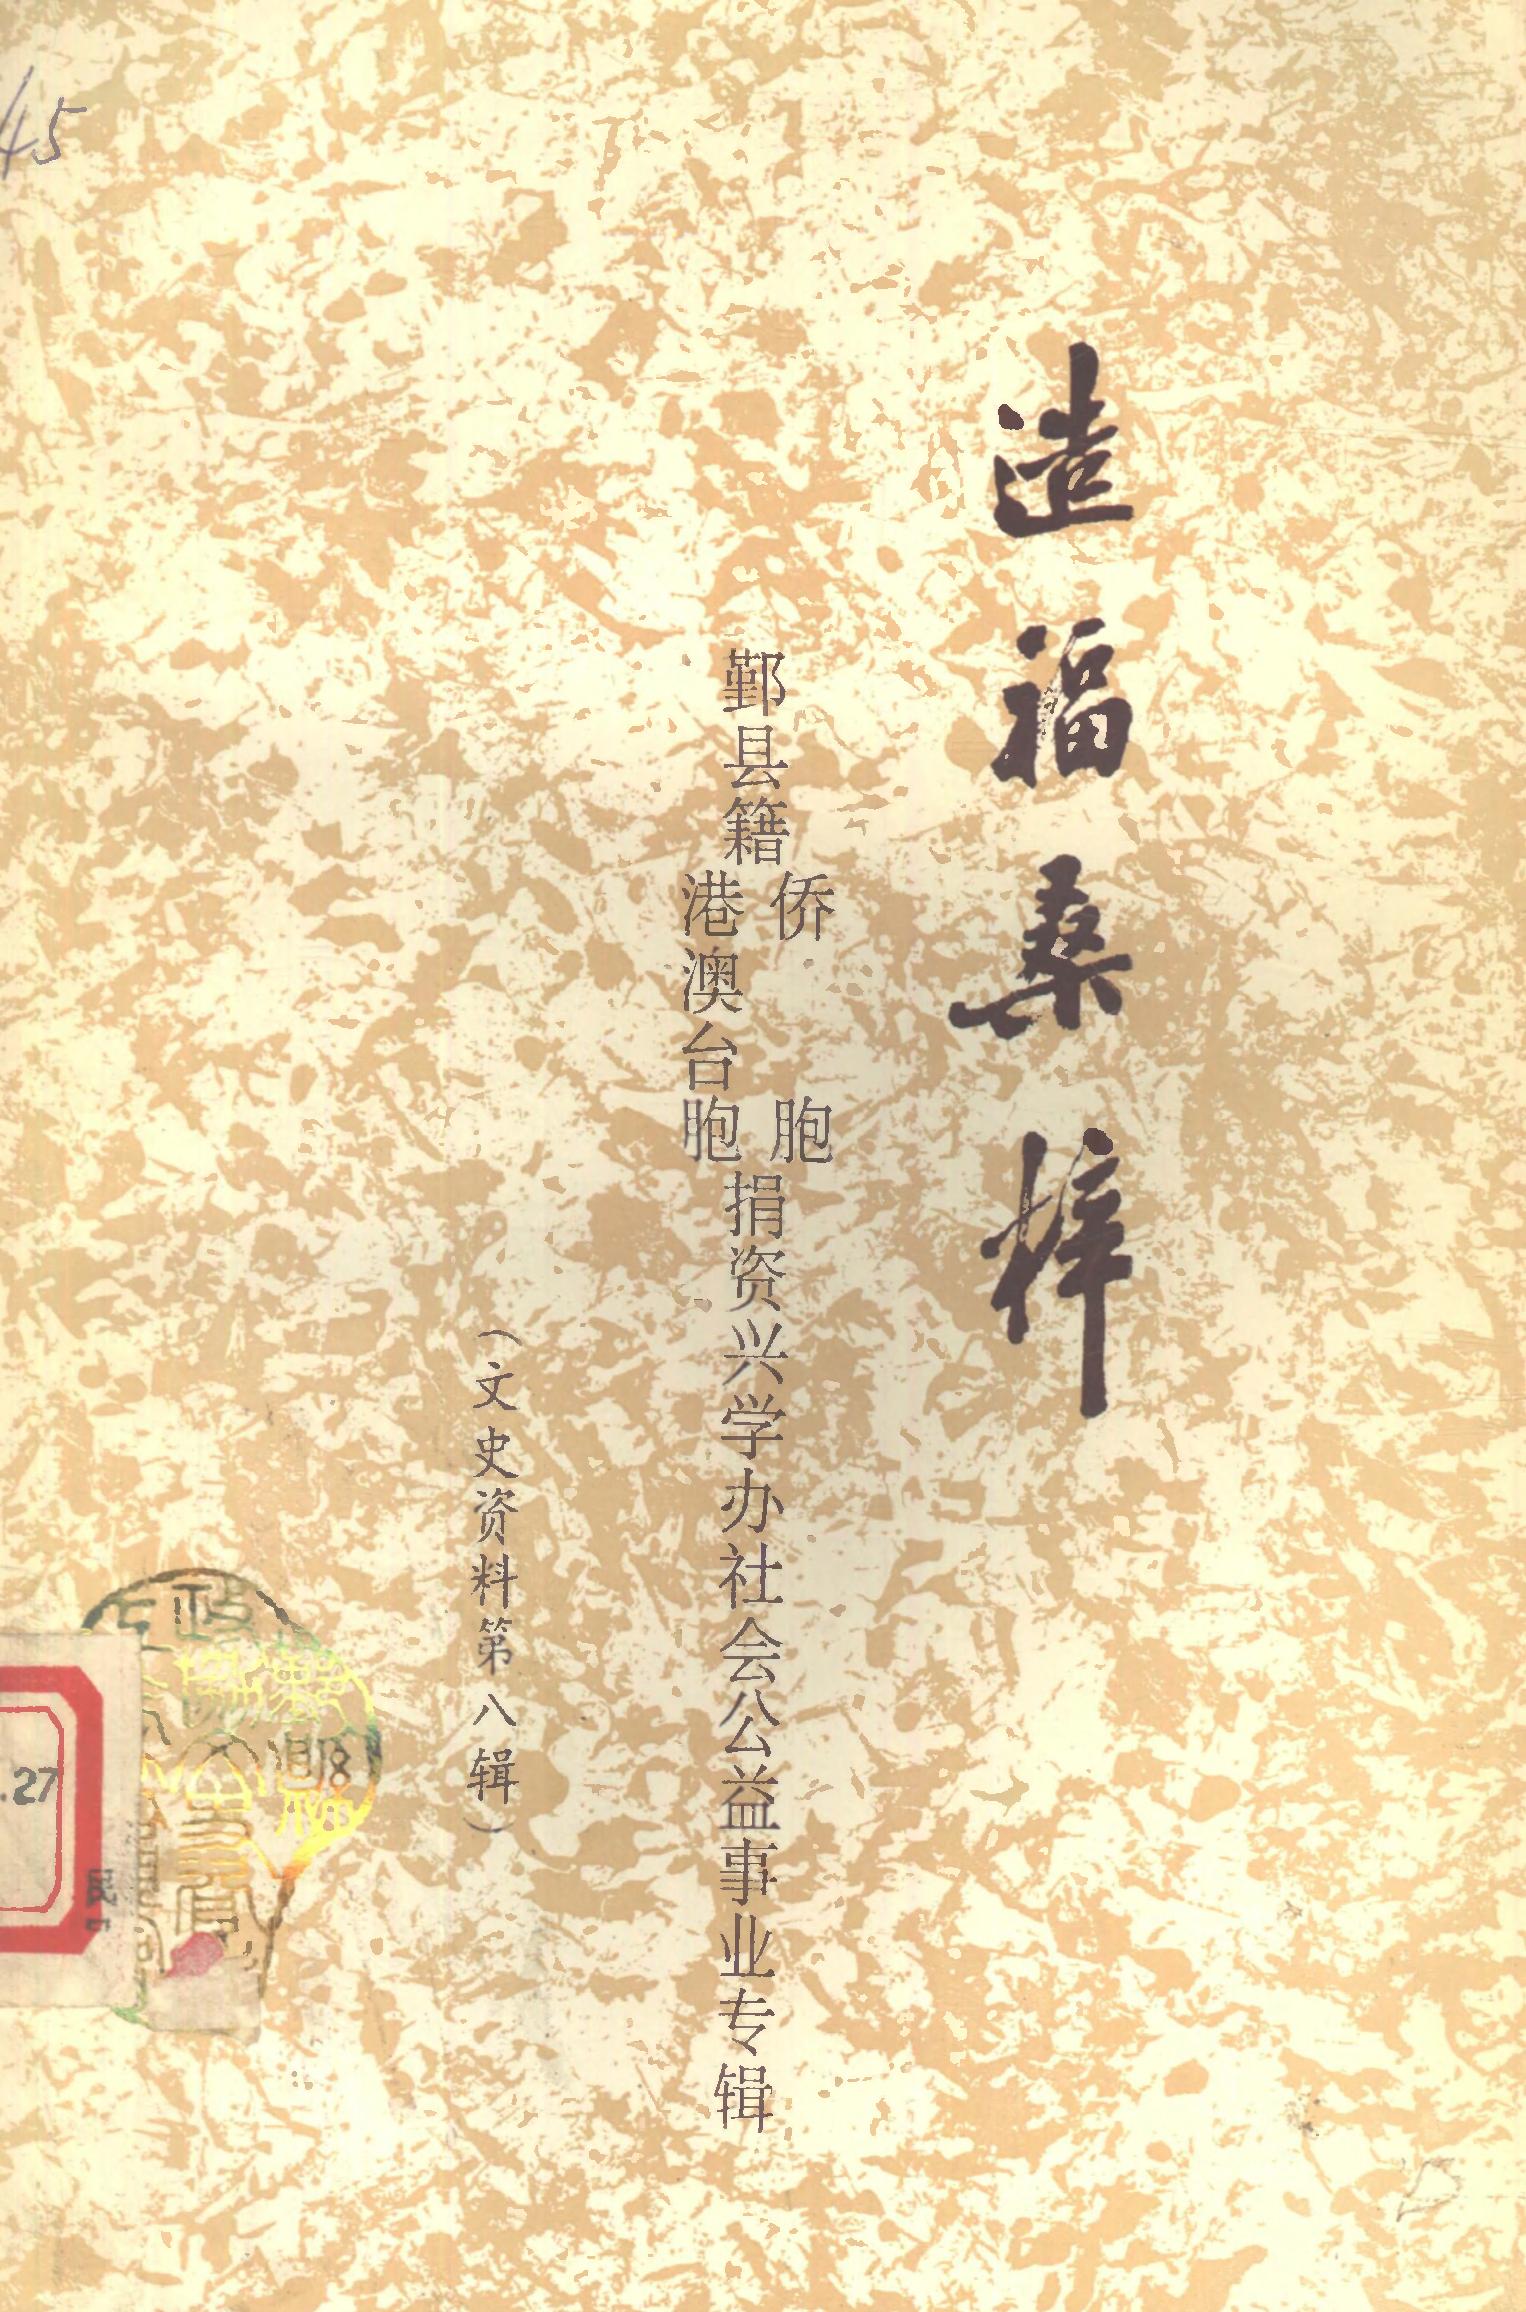 造福桑梓
鄞县籍
侨胞
港澳台胞
捐资兴学办社会公益事业专辑
（文史资料第八辑）
45
.27